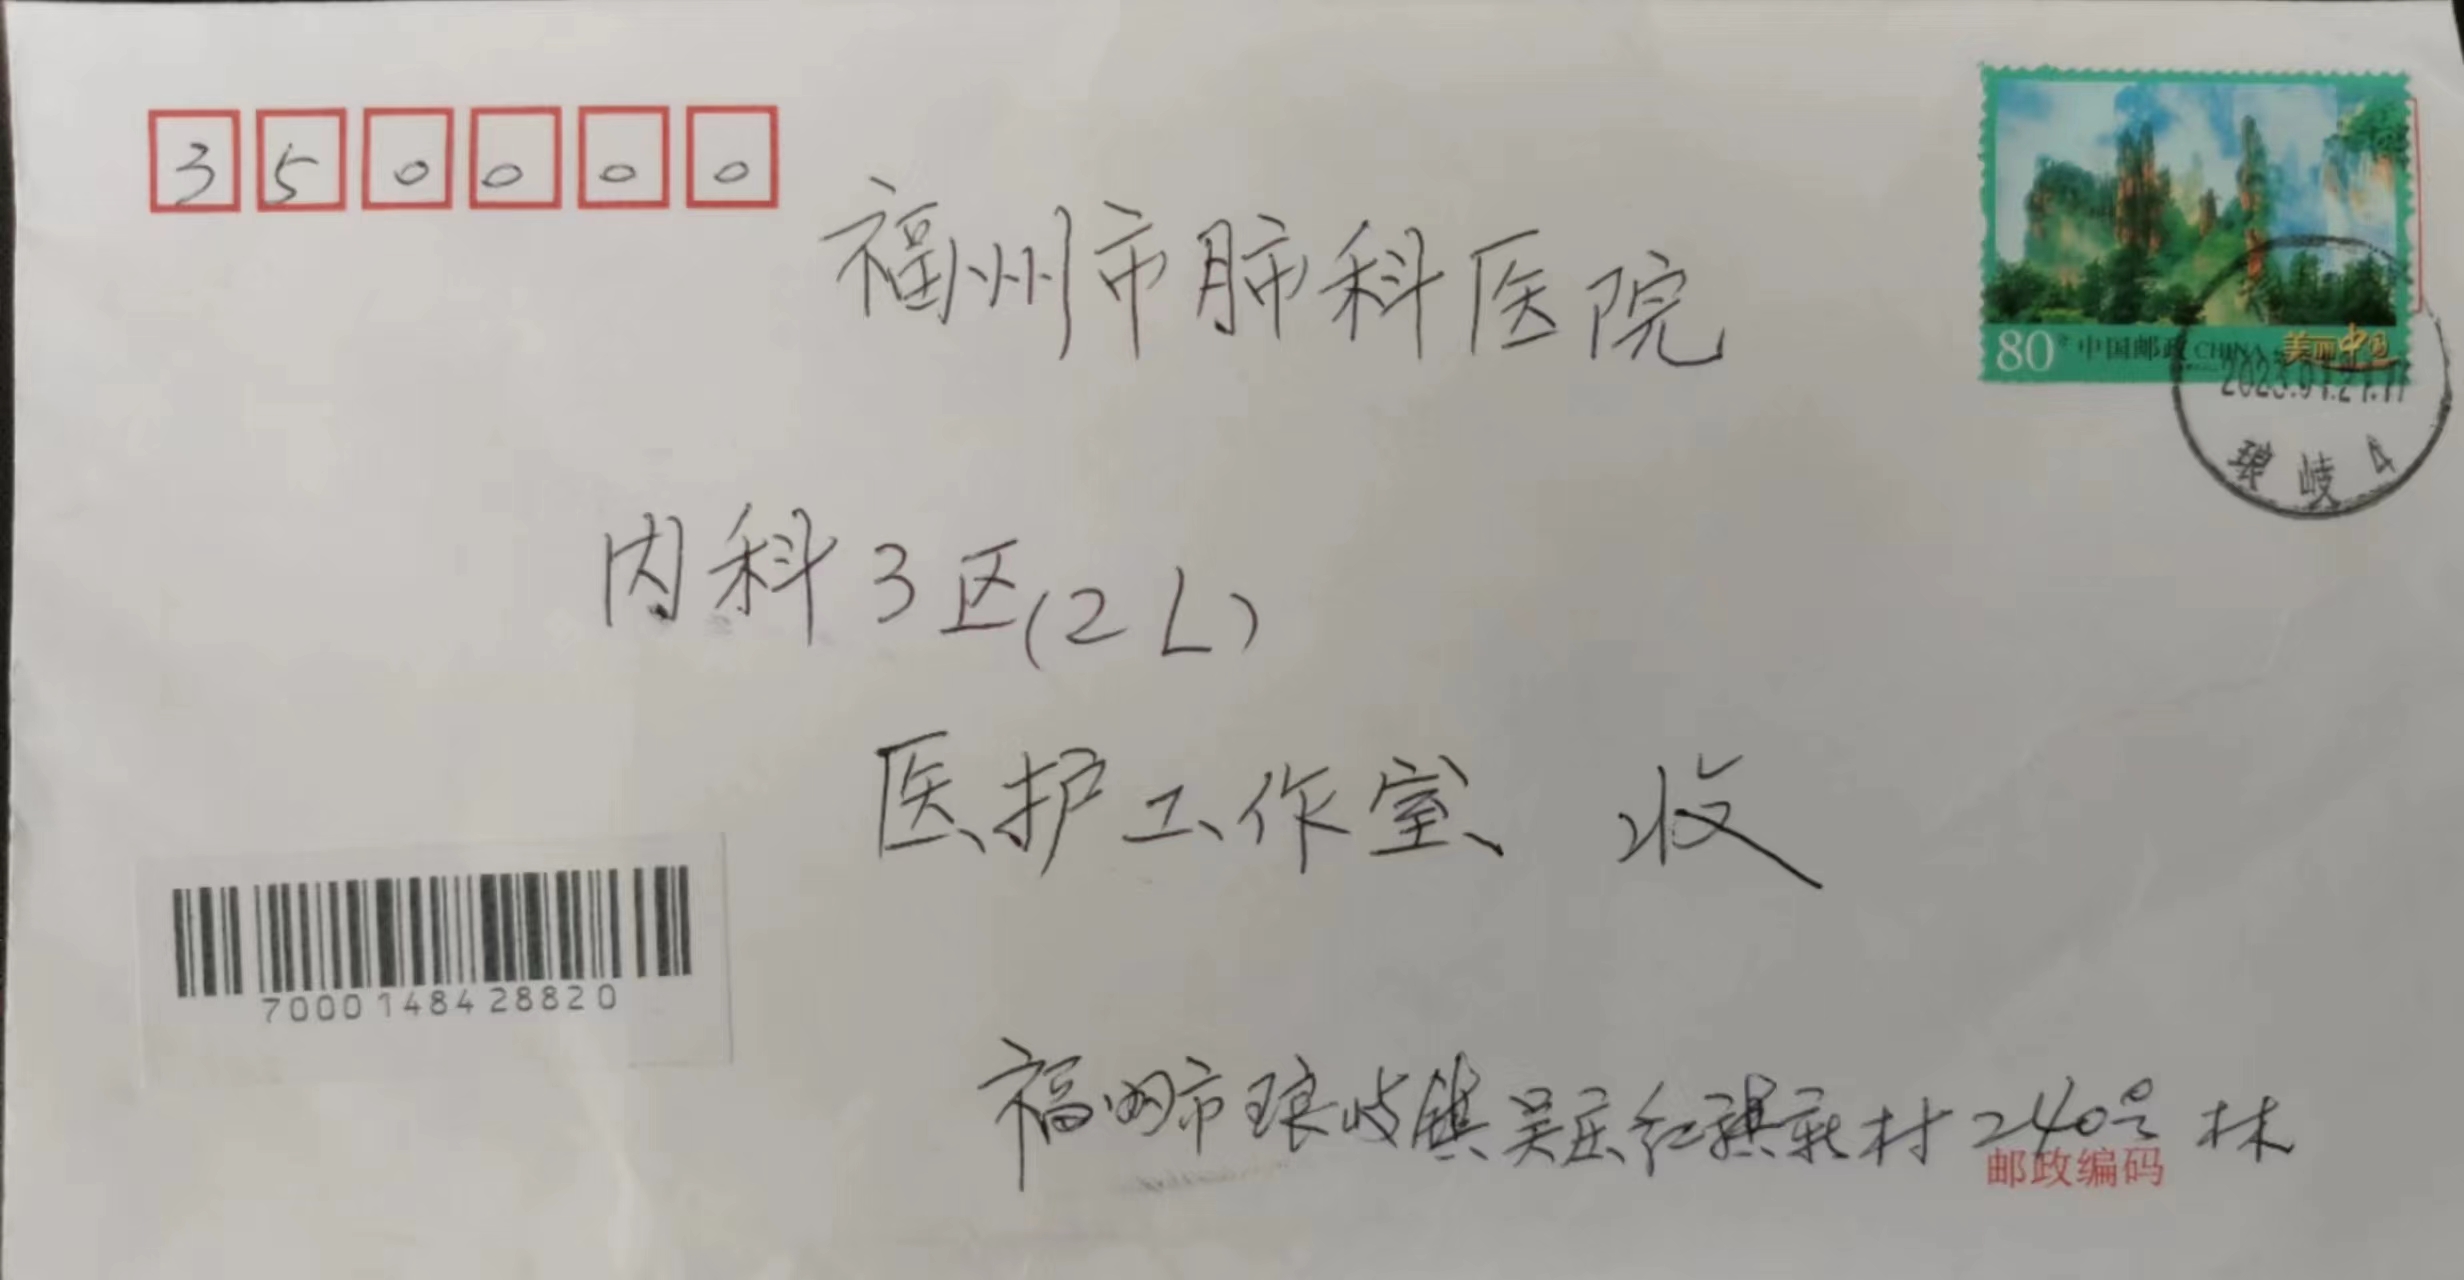 350000
福州市肺科医院
80分 中国邮政 CHINA 美丽中国
琅岐 4
内科3区(2L)
医护工作室 收
7000148428820
福州市琅岐镇吴庄红旗新村240号 林
邮政编码